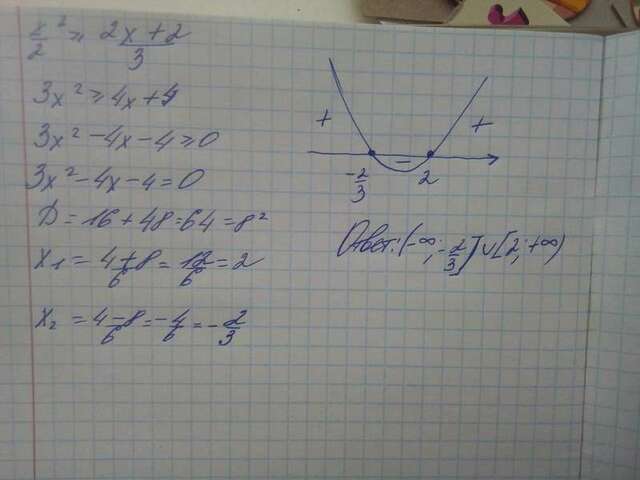 x²/2 ⩾ (2x+2)/3
3x² ⩾ 4x+4
3x² -4x-4 ⩾ 0
3x² -4x-4=0
D=16+48=64=8²
x₁ = (4+8)/6 = 12/6 = 2
x₂ = (4-8)/6 = -4/6 = -2/3
+ - +
-2/3 2
Ответ: (-∞; -2/3] ∪ [2; +∞)